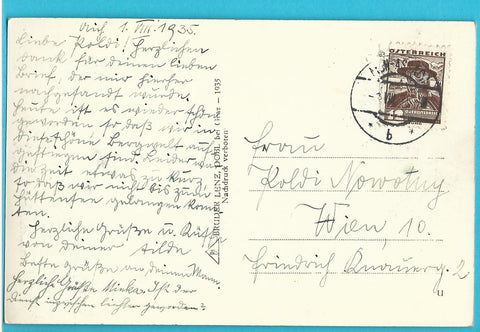 Aich 1. VIII. 1935.
Liebe Poldi! Herzlichen
Dank für deinen lieben
Brief, der mir hierher
nachgesandt wurde.
Heute ist es wieder schön
geworden so daß wir in
die schöne Bergwelt auf
gestiegen sind. Leider war
die Zeit etwas zu kurz
so daß wir nicht bis zum
gelangen konn
ten.
Herzliche Grüße u. Küsse
von deiner Tilde
Beste Grüße an deinen Mann.
Herzliche Grüße Mieka. Ist der
inzwischen leichter geworden?
BRÜDER LENZ, DOBL bei Graz — 1935
Nachdruck verboten
ÖSTERREICH
12
b
Frau
Poldi Nowotny
Wien, 10.
Friedrich Knauerg. 2